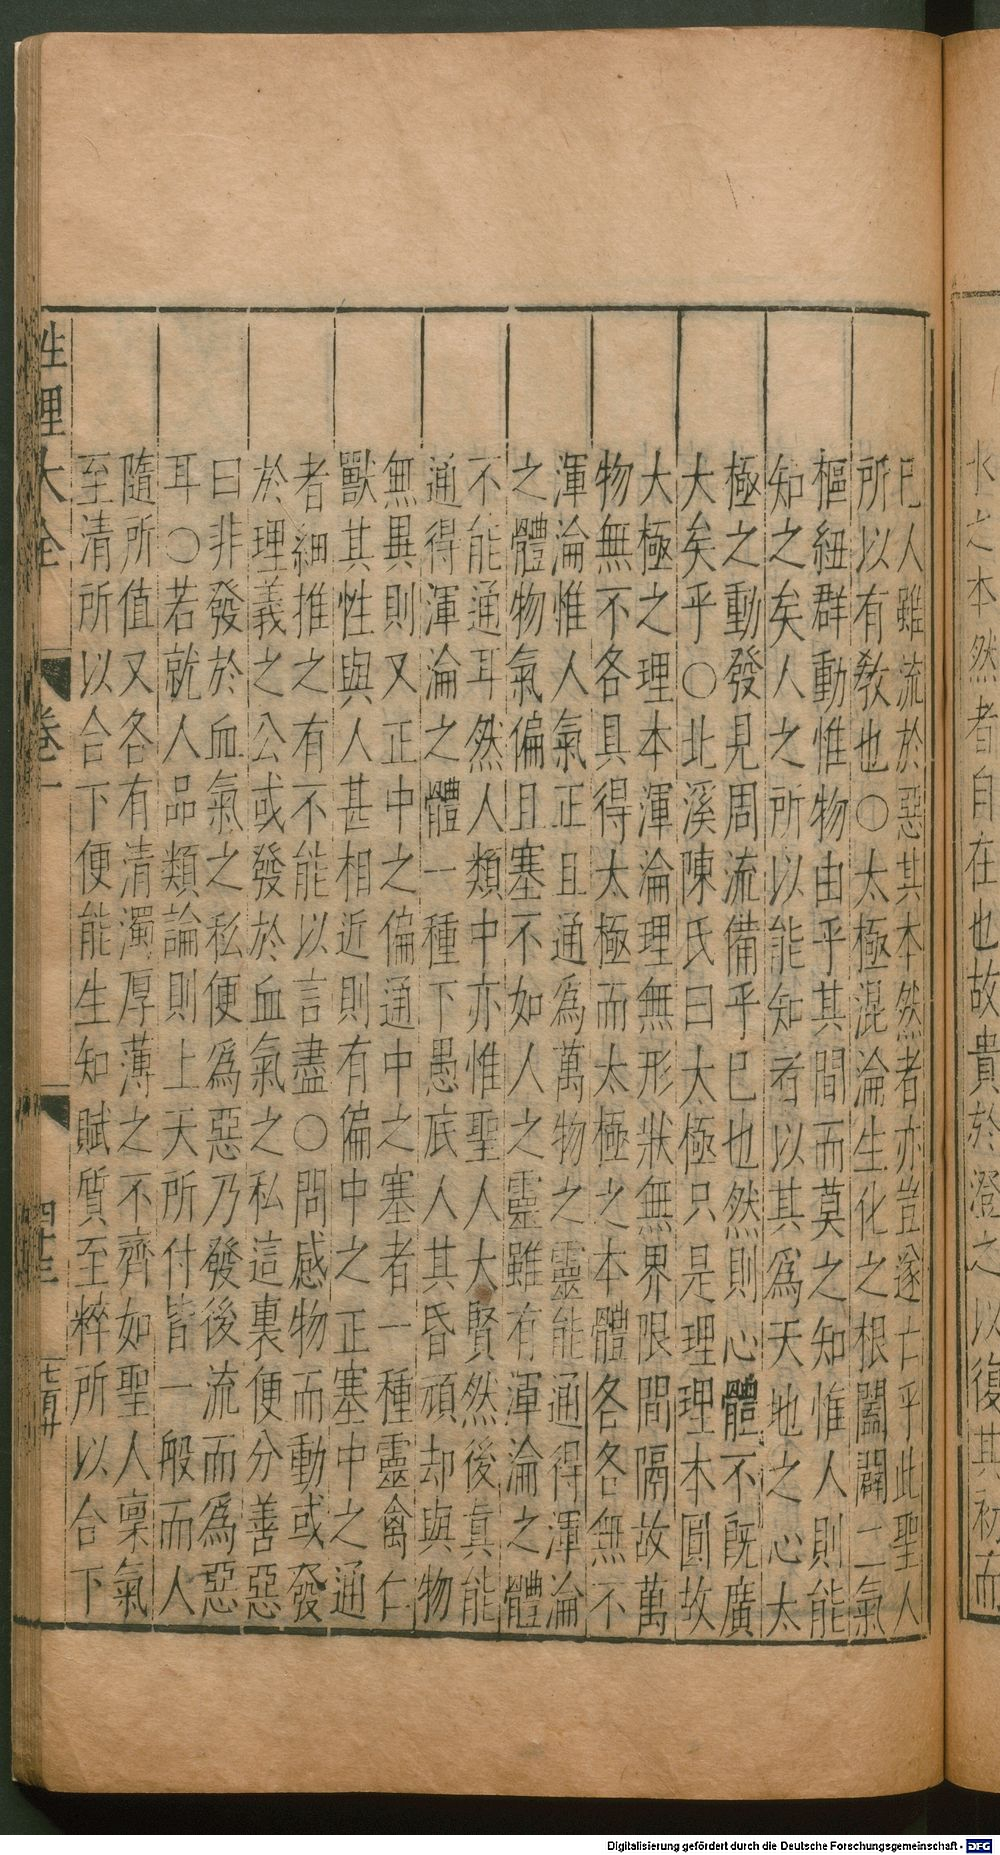 長之本然者自在也故貴於澄之以復其初而
已人雖流於惡其本然者亦豈遂亡乎此聖人
所以有敎也○太極混淪生化之根闔闢二氣
樞紐群動惟物由乎其間而莫之知惟人則能
知之矣人之所以能知者以其爲天地之心太
極之動發見周流備乎巳也然則心體不旣廣
大矣乎○北溪陳氏曰太極只是理理本圓故
大極之理本渾淪理無形狀無界限間隔故萬
物無不各具得太極而太極之本體各各無不
渾淪惟人氣正且通爲萬物之靈能通得渾淪
之體物氣偏且塞不如人之靈雖有渾淪之體
不能通耳然人類中亦惟聖人大賢然後眞能
通得渾淪之體一種下愚底人其昏頑却與物
無異則又正中之偏通中之塞者一種靈禽仁
獸其性與人甚相近則有偏中之正塞中之通
者細推之有不能以言盡○問感物而動或發
於理義之公或發於血氣之私這裏便分善惡
曰非發於血氣之私便爲惡乃發後流而爲惡
耳○若就人品類論則上天所付皆一般而人
隨所值又各有清濁厚薄之不齊如聖人稟氣
至清所以合下便能生知賦質至粹所以合下
性理大全 卷一 四十三
Digitalisierung gefördert durch die Deutsche Forschungsgemeinschaft - DFG